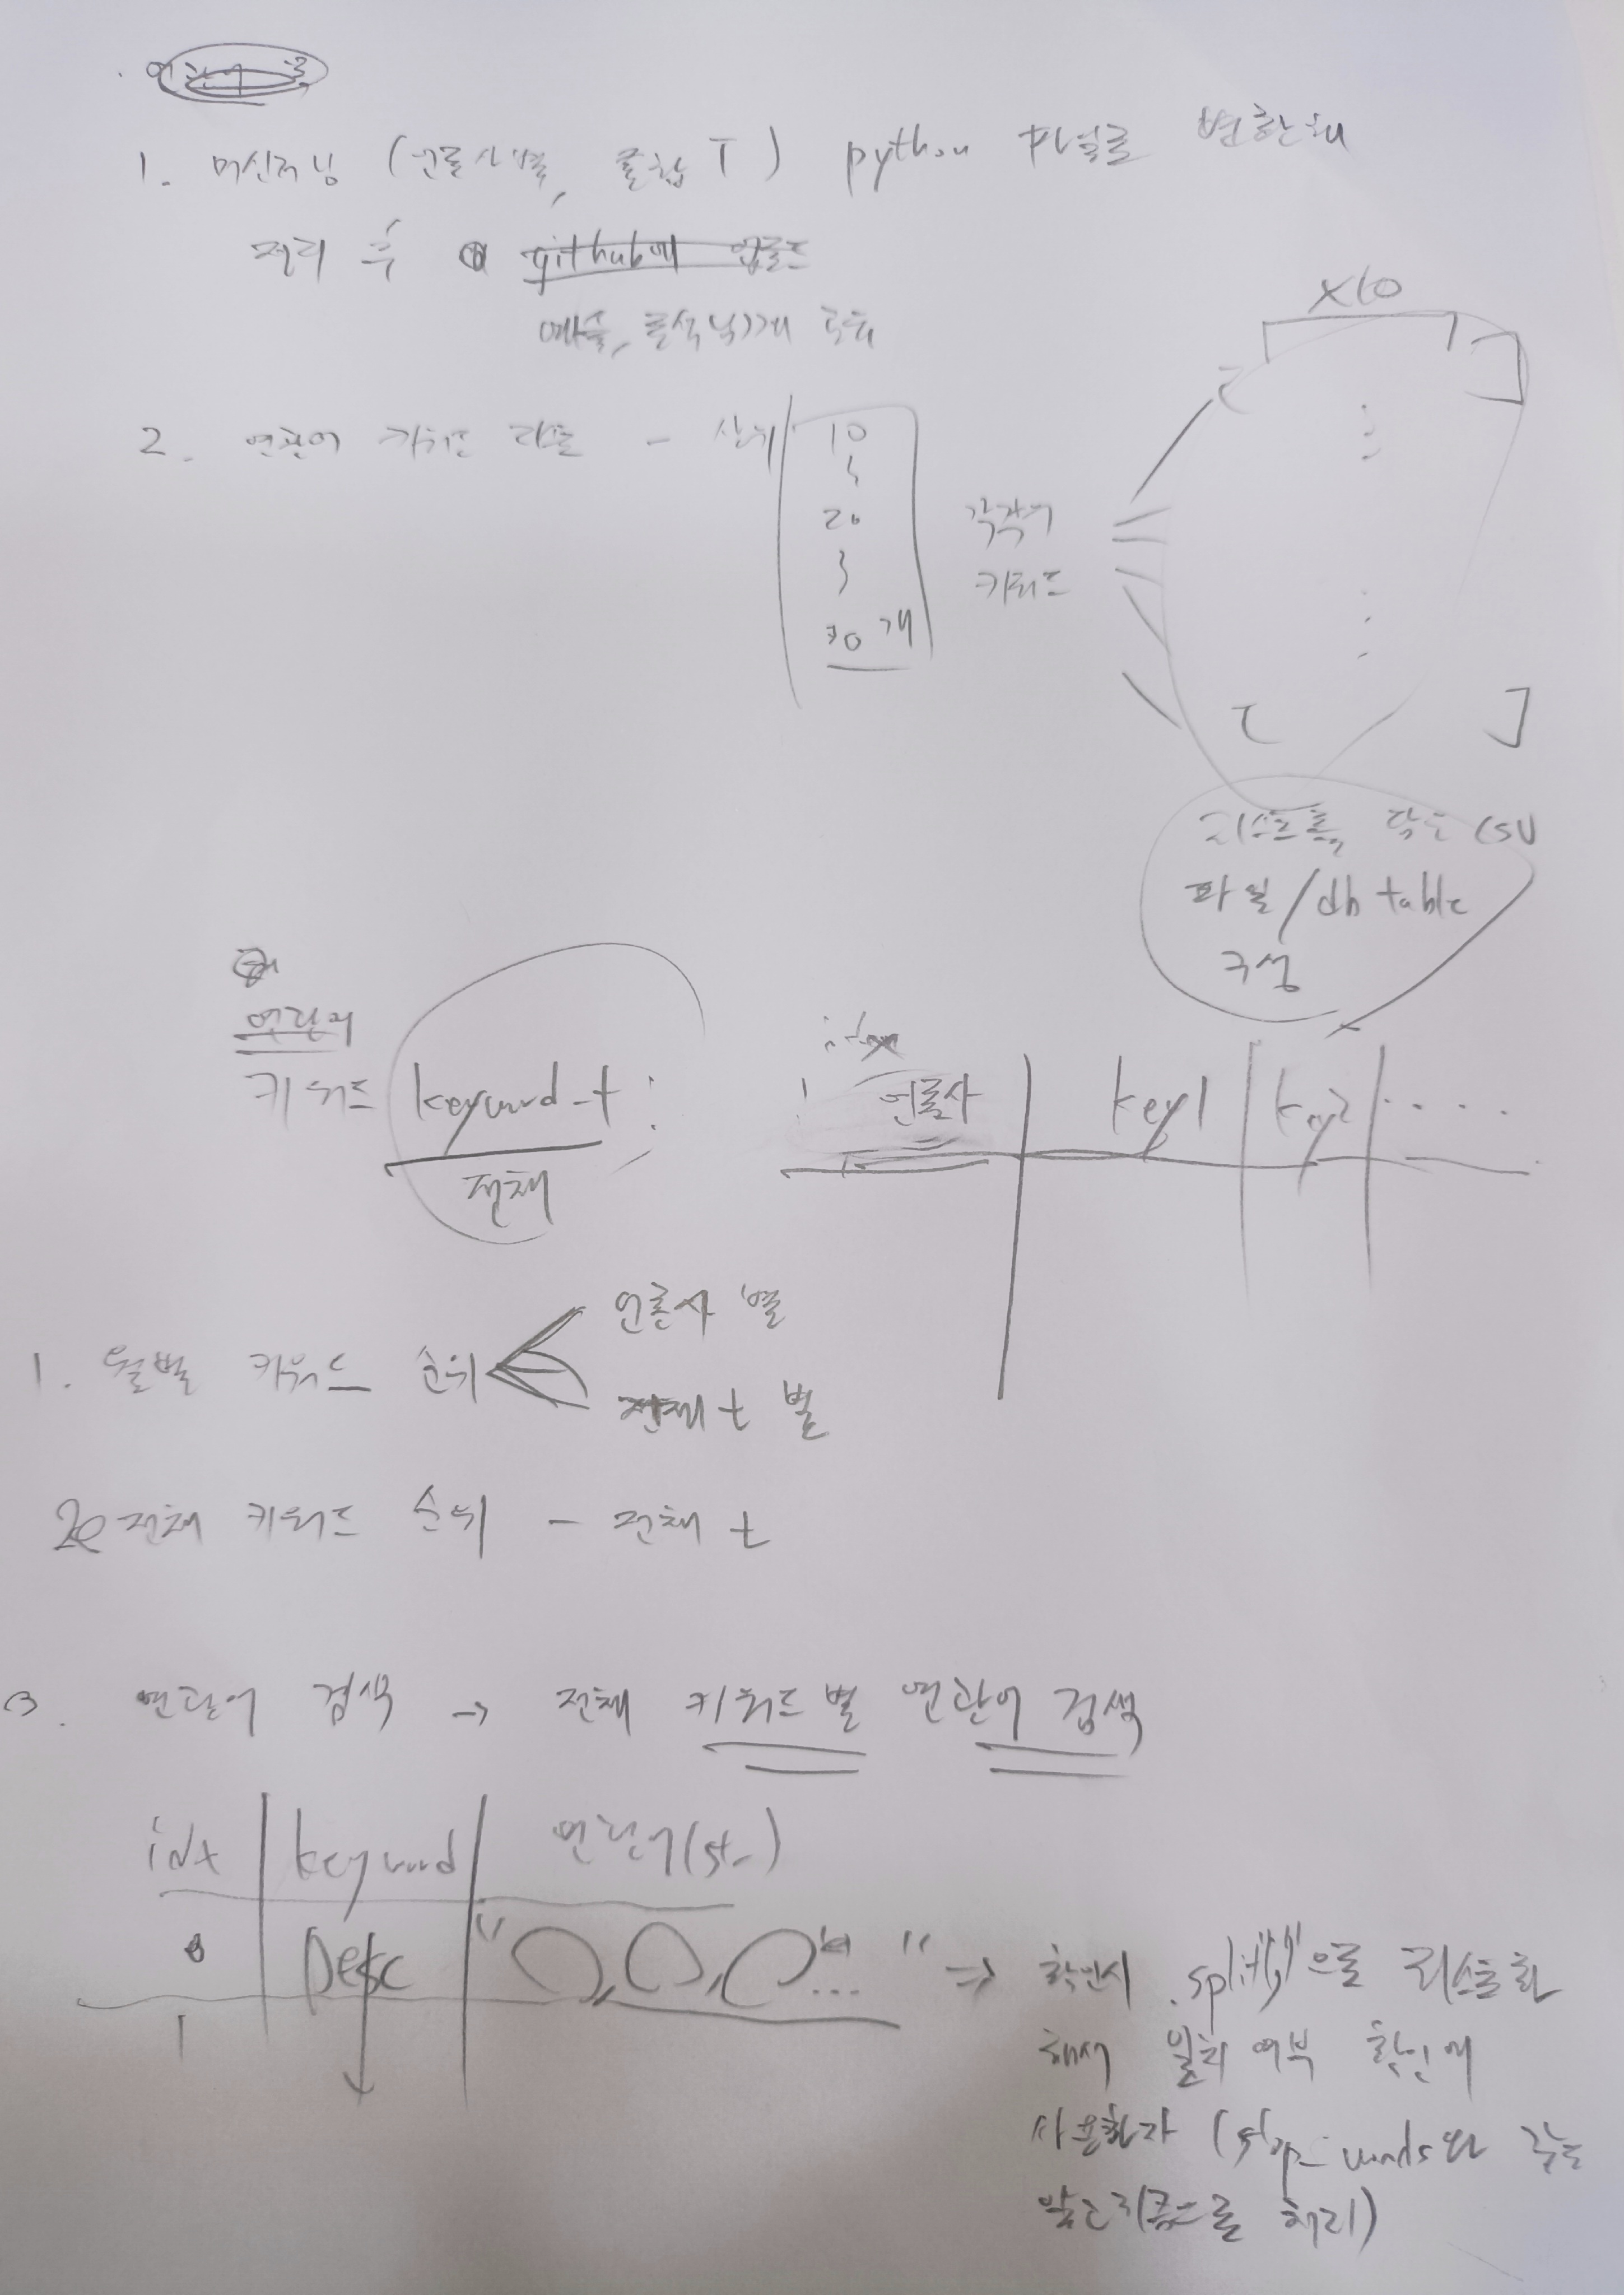 1. 머신러닝 (언론사별, 종합 T) python 파일로 변환해
정리 후 github에 업로드
예슬, 님에게 공유
x10
2. 연관어 키워드 리스트 - 상위
10
20
30개
각각의
키워드
리스트를 담는 csv
파일/db table
구성
연관어
키워드 keyword_t
전체
언론사 key1 key2 ....
1. 월별 키워드 순위
언론사 별
전체 t 별
2. 전체 키워드 순위 - 전체 t
3. 연관어 검색 → 전체 키워드별 연관어 검색
idx keyword 연관어(str)
0 Desc " , , ... " ⇒ 확인시 .split(",")으로 리스트화
1
해서 일치 여부 확인에
사용하자 (stop_words와 같은
알고리즘으로 처리)